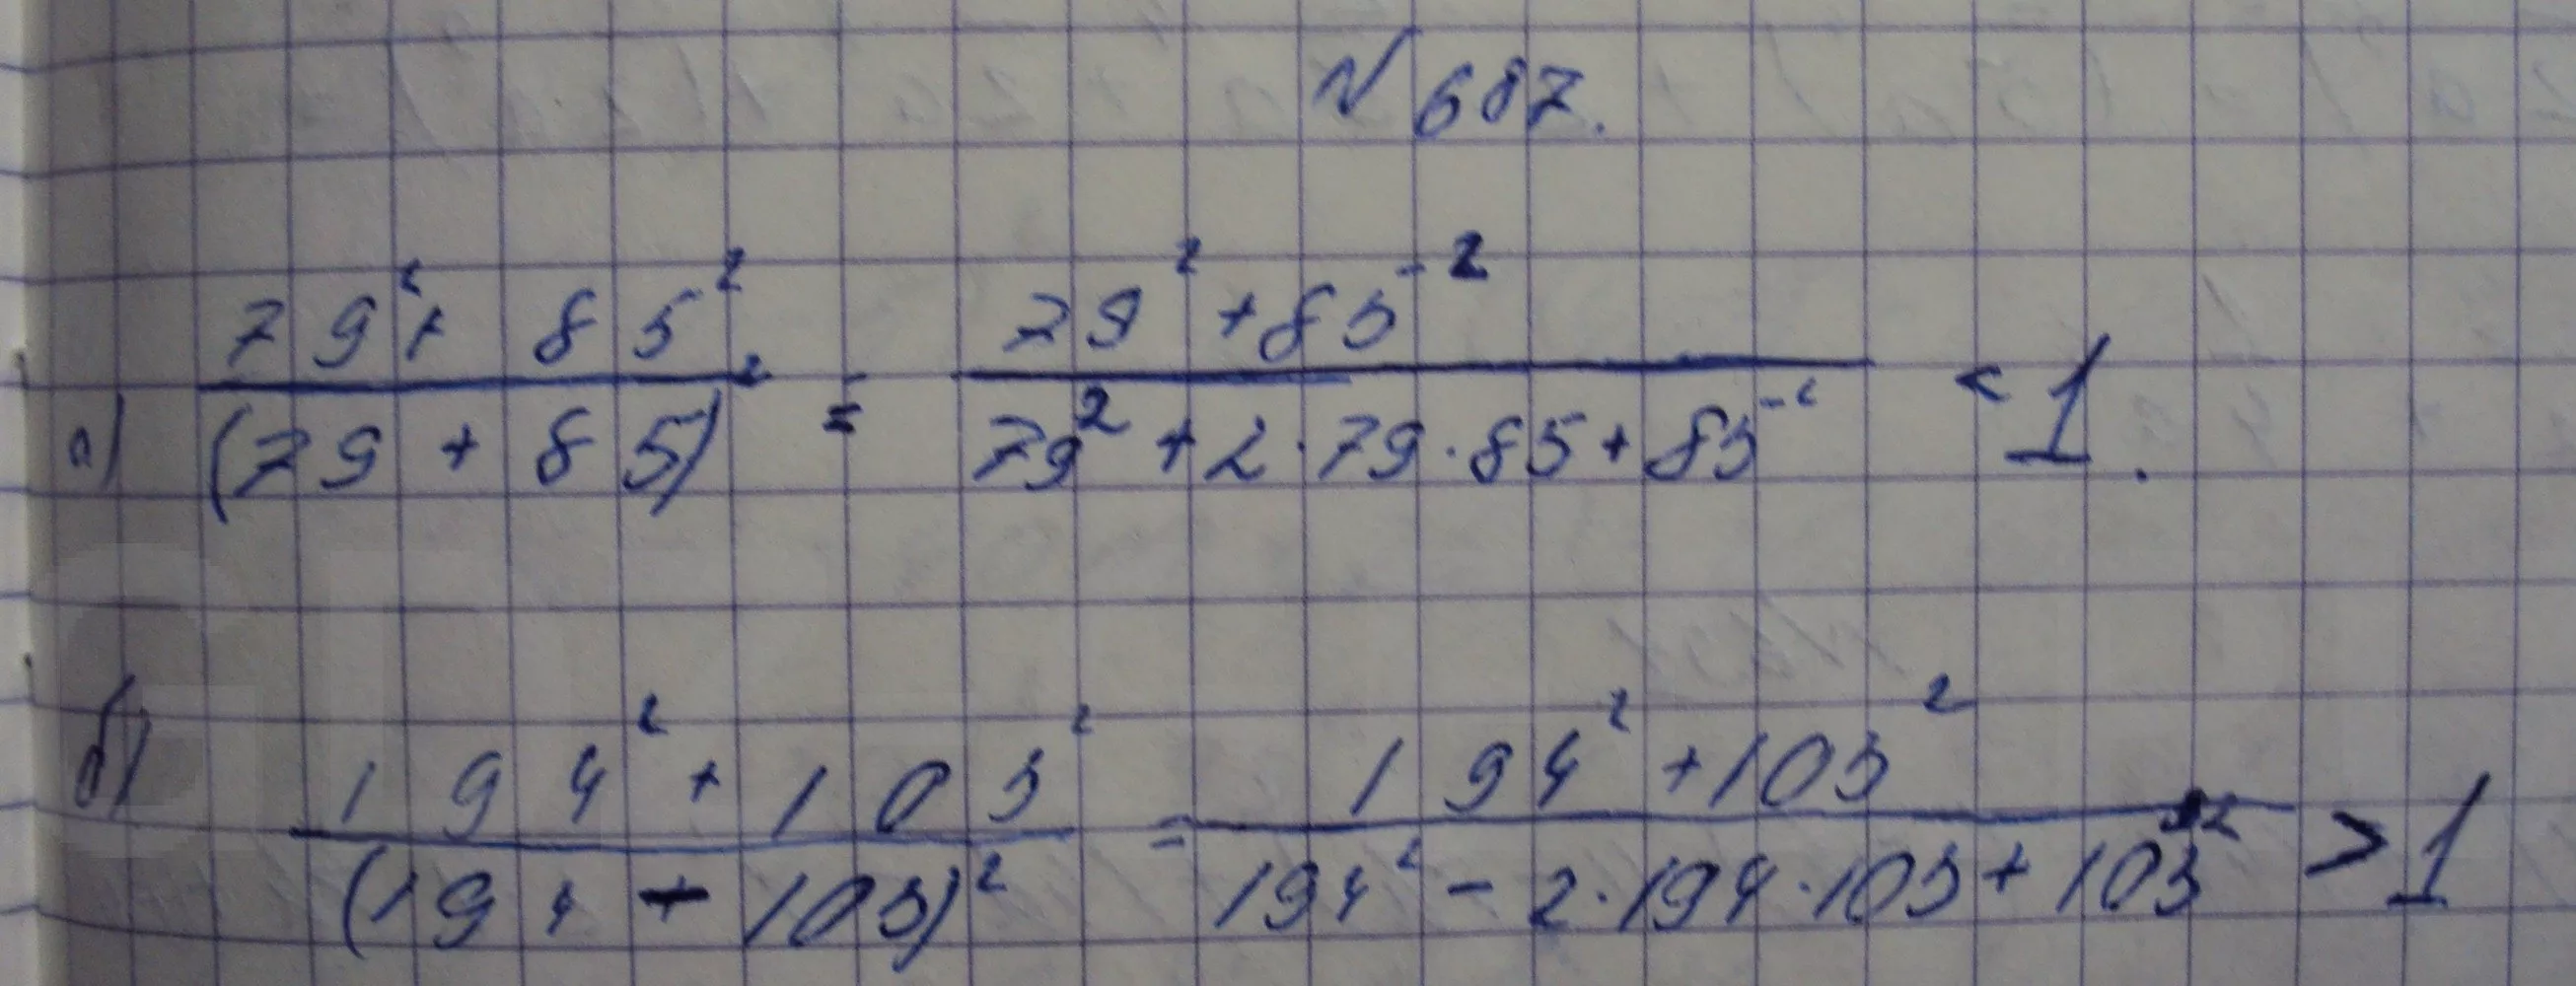 №687.
а) (79² + 85²)/(79 + 85)² = (79² + 85⁻²)/(79² + 2·79·85 + 85⁻²) < 1.
б) (194² + 103²)/(194 - 103)² = (194² + 103²)/(194² - 2·194·103 + 103²) > 1